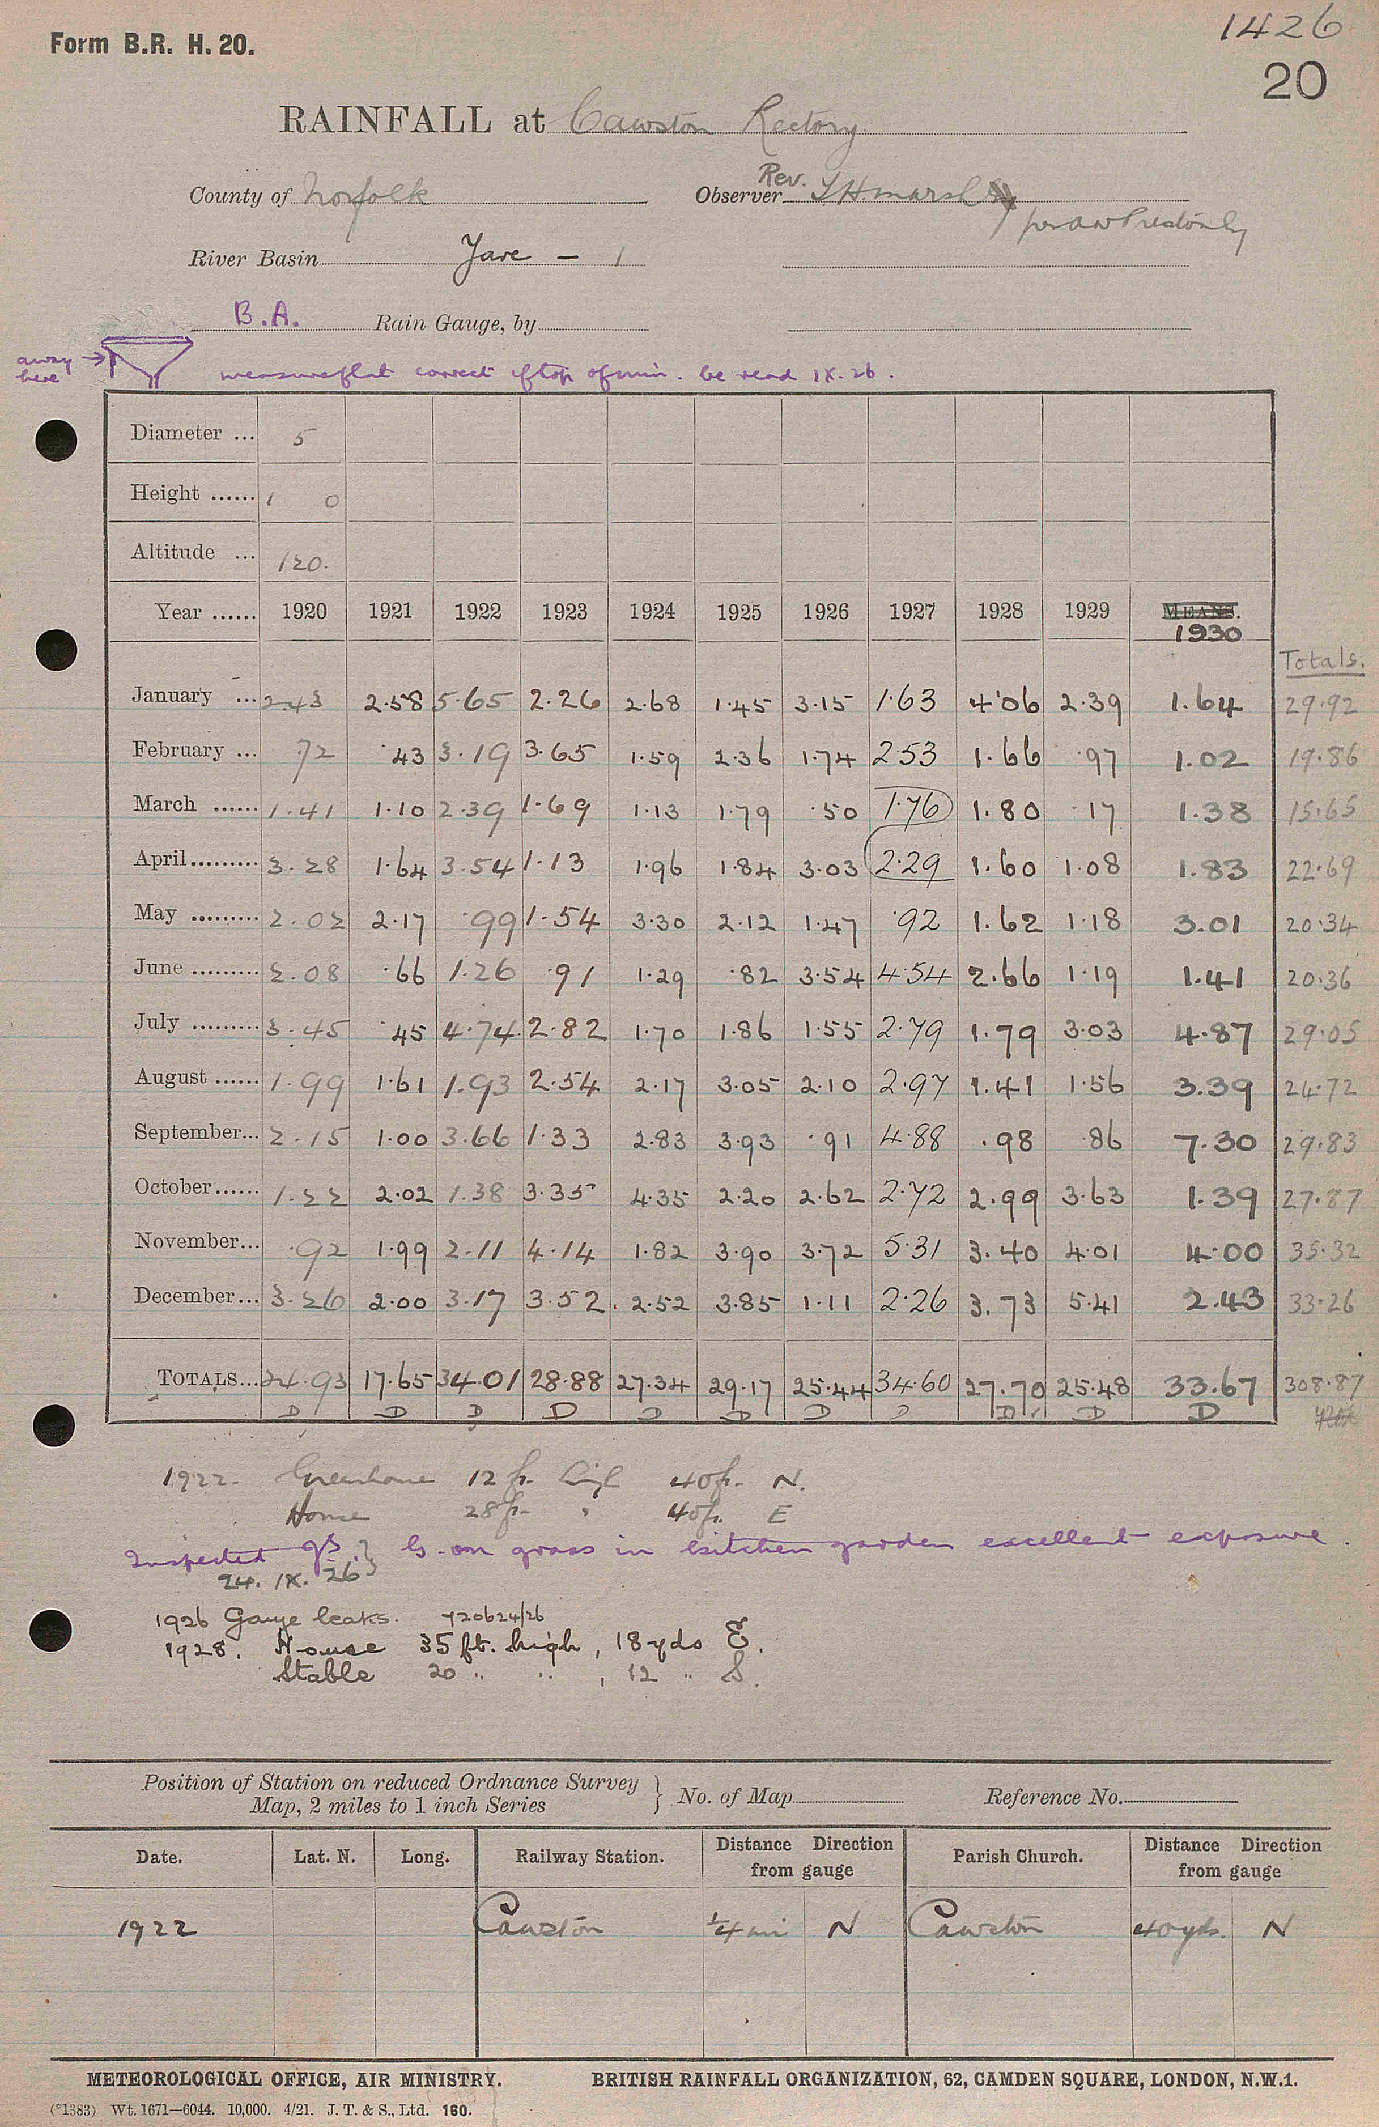 1426
Form B.R. H. 20.
20
RAINFALL at Cawston Rectory
County of Norfolk Observer Rev. T H Marsh
River Basin Yare - 1
B.A. Rain Gauge, by
away here correct if top of be read IX.26.
Diameter ... 5
Height ...... 1 0
Altitude ... 120.
Year ...... 1920 1921 1922 1923 1924 1925 1926 1927 1928 1929 MEANS. 1930
Totals.
January ... 2.43 2.58 5.65 2.26 2.68 1.45 3.15 1.63 4.06 2.39 1.64 29.92
February ... .72 .43 3.19 3.65 1.59 2.36 1.74 2.53 1.66 .97 1.02 19.86
March ...... 1.41 1.10 2.39 1.69 1.13 1.79 .50 1.76 1.80 .17 1.38 15.65
April......... 3.28 1.64 3.54 1.13 1.96 1.84 3.03 2.29 1.60 1.08 1.83 22.69
May ......... 2.02 2.17 .99 1.54 3.30 2.12 1.47 .92 1.62 1.18 3.01 20.34
June ......... 2.08 .66 1.26 .91 1.29 .82 3.54 4.54 2.66 1.19 1.41 20.36
July ......... 3.45 .45 4.74 2.82 1.70 1.86 1.55 2.79 1.79 3.03 4.87 29.05
August ...... 1.99 1.61 1.93 2.54 2.17 3.05 2.10 2.97 1.41 1.56 3.39 24.72
September... 2.15 1.00 3.66 1.33 2.83 3.93 .91 4.88 .98 .86 7.30 29.83
October...... 1.22 2.02 1.38 3.35 4.35 2.20 2.62 2.72 2.99 3.63 1.39 27.87
November... .92 1.99 2.11 4.14 1.82 3.90 3.72 5.31 3.40 4.01 4.00 35.32
December... 3.26 2.00 3.17 3.52 2.52 3.85 1.11 2.26 3.73 5.41 2.43 33.26
TOTALS... 24.93 17.65 34.01 28.88 27.34 29.17 25.44 34.60 27.70 25.48 33.67 308.87
D D D D D D D D D D D
1922. Greenhouse 12 ft. high 40 ft. N.
House 28 ft. " 40 ft. E
Inspected G. on grass in kitchen garden excellent exposure.
24. IX. 26
1926 Gauge leaks. 720624/26
1928. House 35 ft. high, 18 yds E.
Stable 20 " " , 12 " S.
Position of Station on reduced Ordnance Survey Map, 2 miles to 1 inch Series } No. of Map Reference No.
Date. Lat. N. Long. Railway Station. Distance Direction from gauge Parish Church. Distance Direction from gauge
1922 Cawston 1/4 mi N Cawston 40 yds. N
METEOROLOGICAL OFFICE, AIR MINISTRY. BRITISH RAINFALL ORGANIZATION, 62, CAMDEN SQUARE, LONDON, N.W.1.
(*1383) Wt. 1671—6044. 10,000. 4/21. J. T. & S., Ltd. 160.